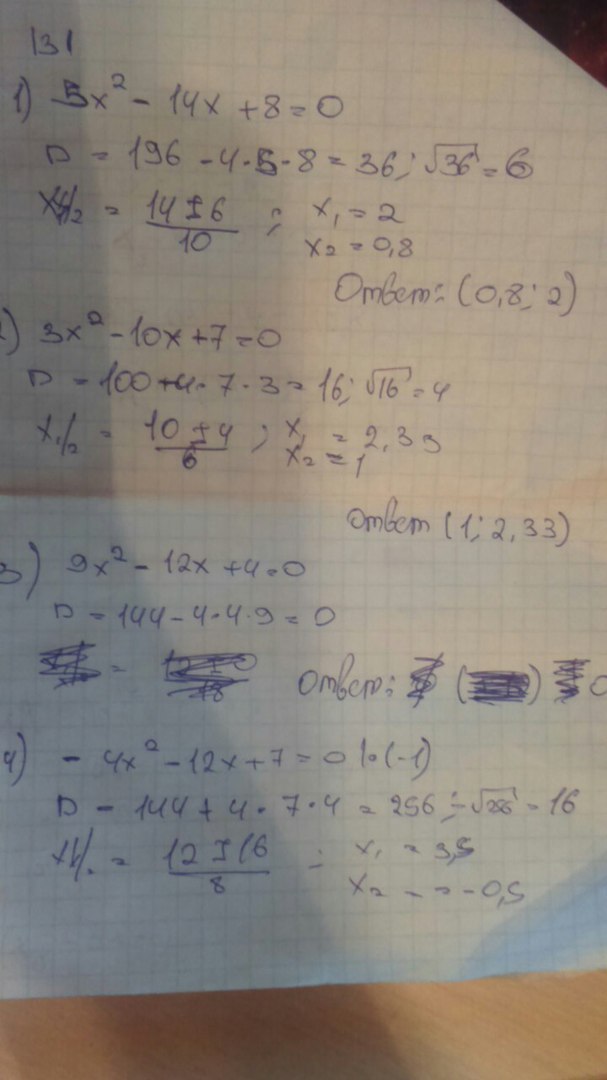 131
1) 5x² - 14x + 8 = 0
D = 196 - 4·5·8 = 36; √36 = 6
x₁/₂ = (14 ± 6)/10 ; x₁ = 2
x₂ = 0,8
Ответ: (0,8; 2)
) 3x² - 10x + 7 = 0
D = 100 + 4·7·3 = 16; √16 = 4
x₁/₂ = (10 ± 4)/6 ; x₁ = 2,33
x₂ = 1
Ответ (1; 2,33)
3) 9x² - 12x + 4 = 0
D = 144 - 4·4·9 = 0
Ответ:
4) - 4x² - 12x + 7 = 0 |·(-1)
D - 144 + 4·7·4 = 256; √256 = 16
= (12 ± 16)/8 ; x₁ = 3,5
x₂ = -0,5